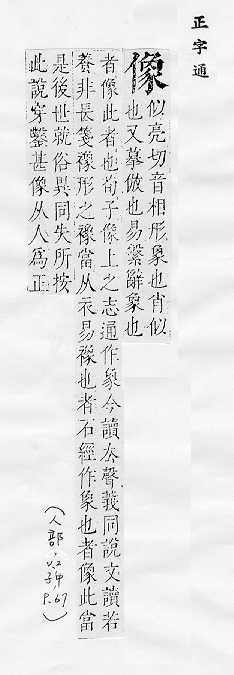 正字通
像
似亮切音相形象也肖似
也又摹倣也易繫辭象也
者像此者也荀子像上之志通作象今讀去聲義同說文讀若
養非長箋襐形之襐當从衣易襐也者石經作象也者像此當
是後世就俗異同失所按
此說穿鑿甚像从人爲正
(人部, 子中 P.67)